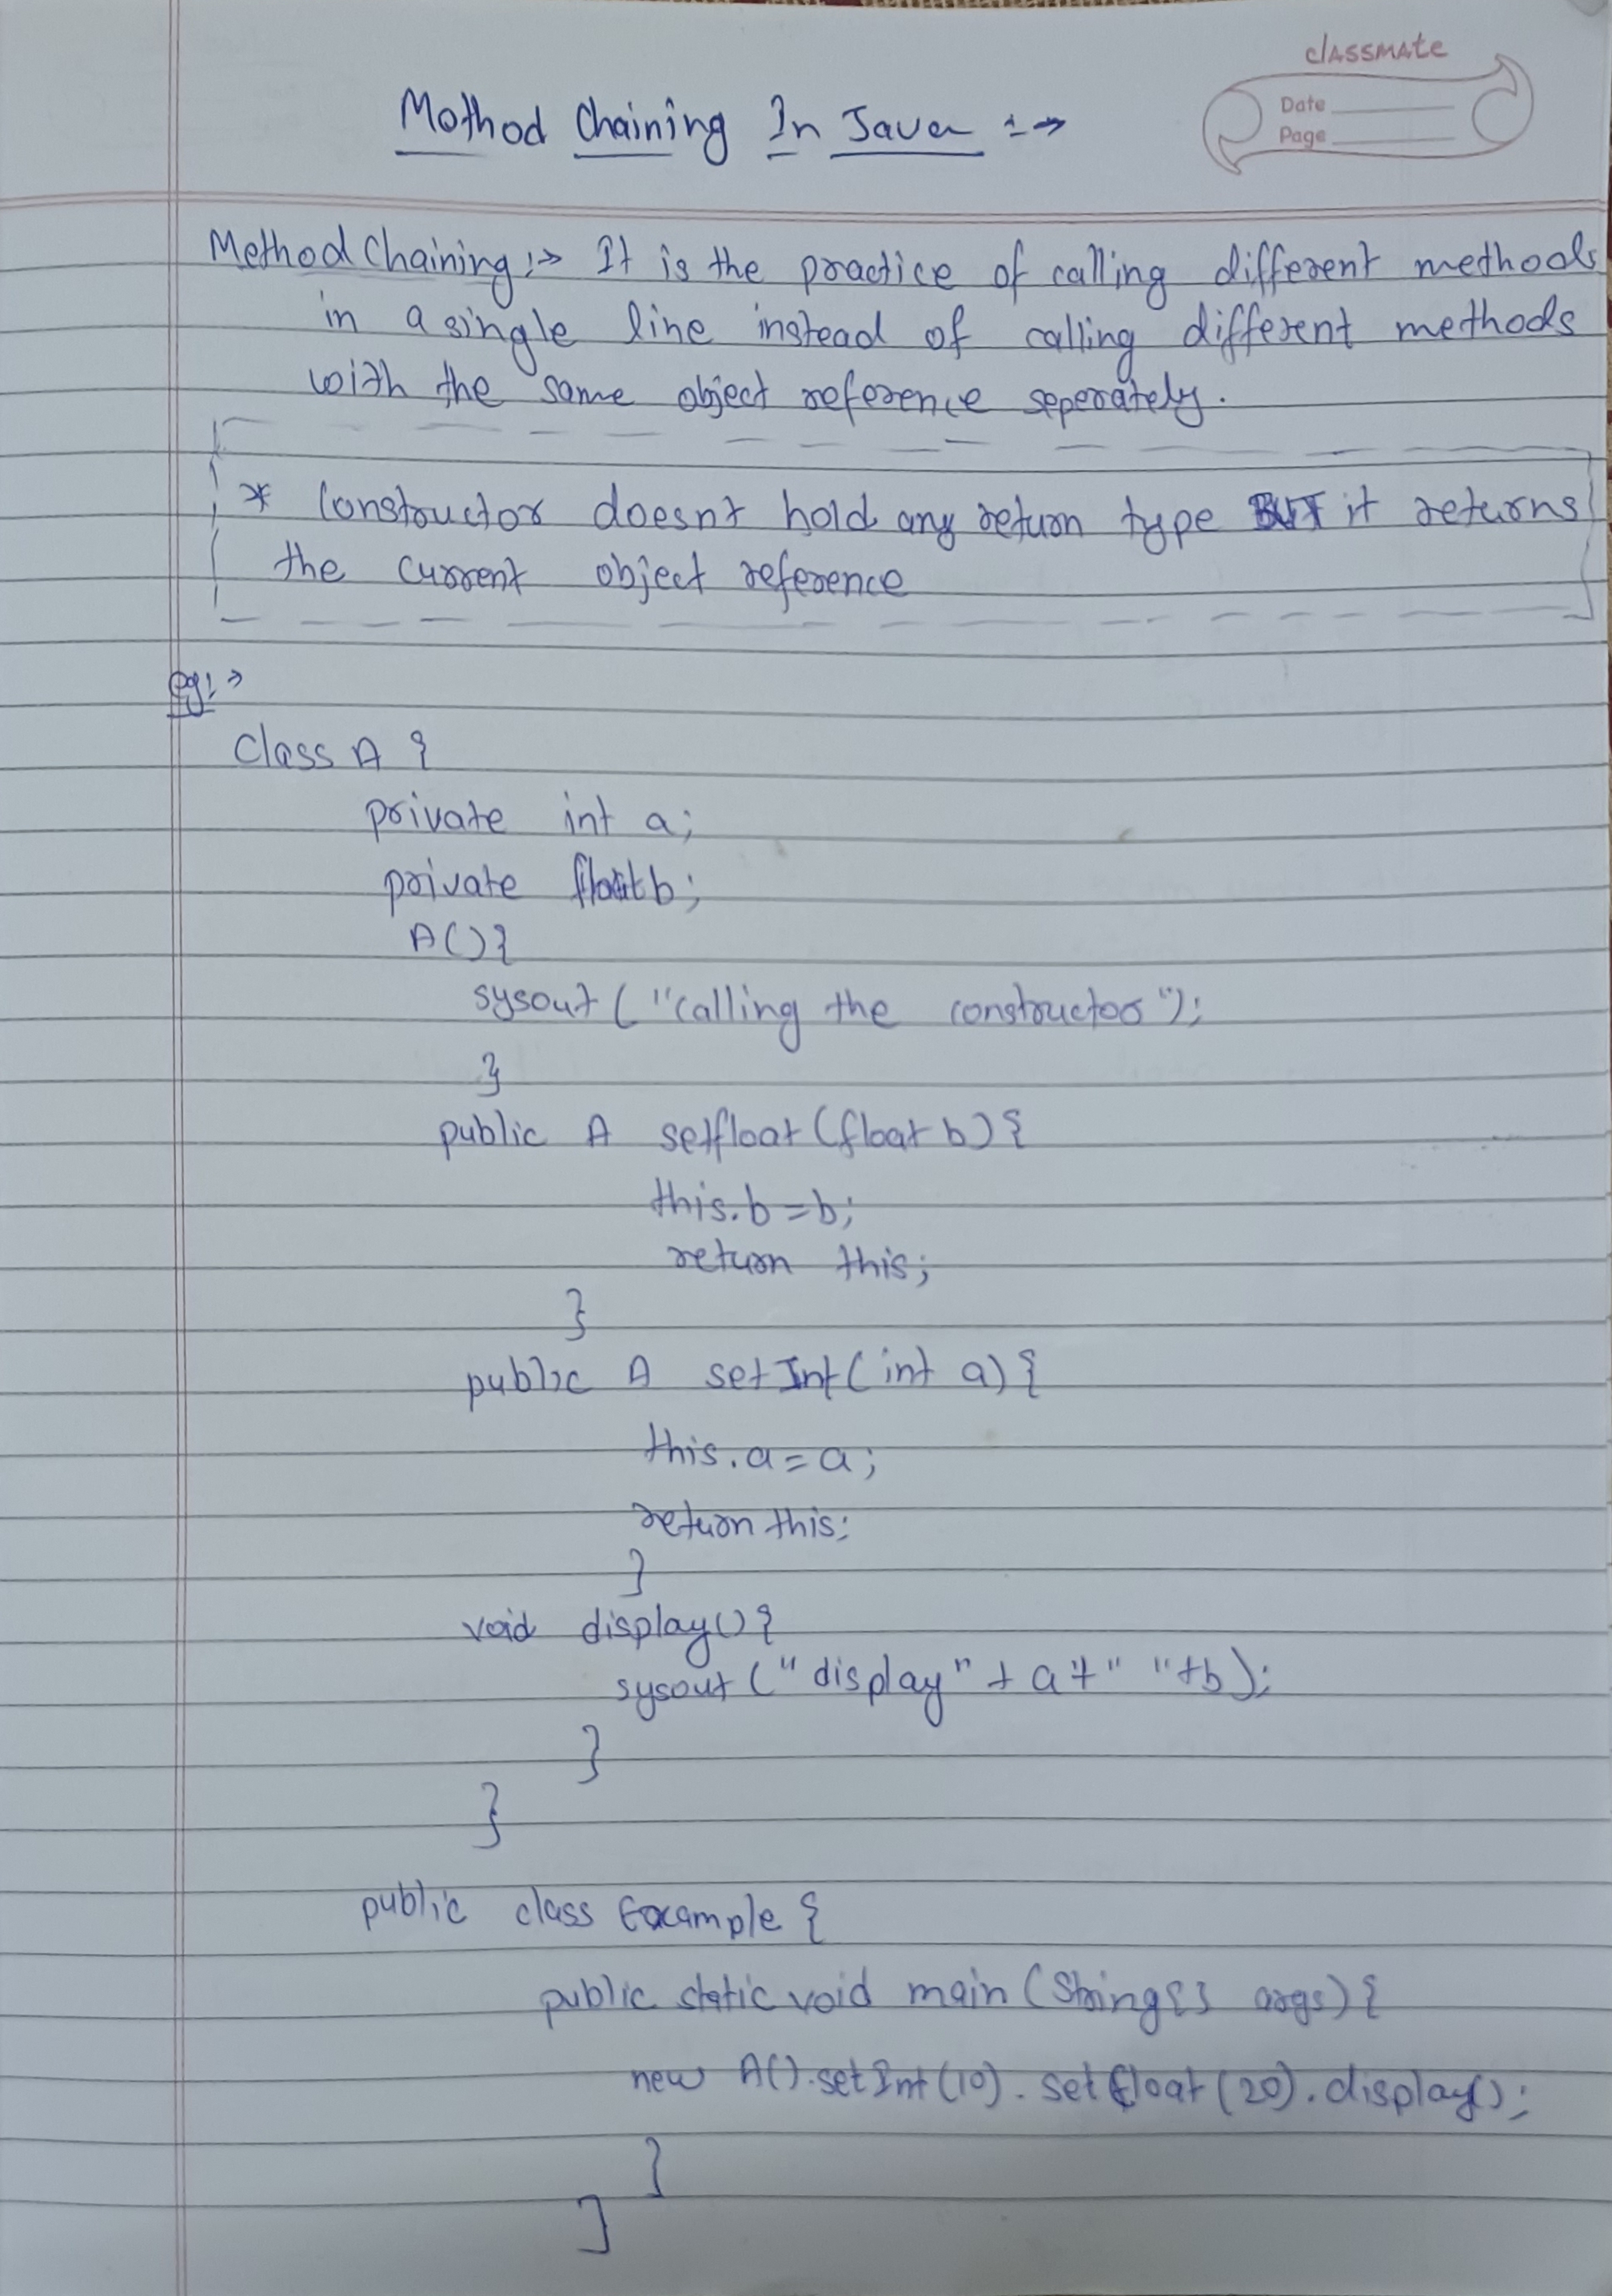 classmate
Date
Page
Method Chaining In Java :->
Method Chaining :-> It is the practice of calling different methods
in a single line instead of calling different methods
with the same object reference seperately.
* Constructor doesn't hold any return type BUT it returns
the current object reference
eg: ->
Class A {
private int a;
private float b;
A(){
sysout ("calling the constructor");
}
public A setfloat (float b) {
this.b = b;
return this;
}
public A setInt (int a) {
this.a = a;
return this;
}
void display() {
sysout ("display" + a + " " + b);
}
}
public class Example {
public static void main (String[] args) {
new A().setInt(10).setfloat(20).display();
}
}